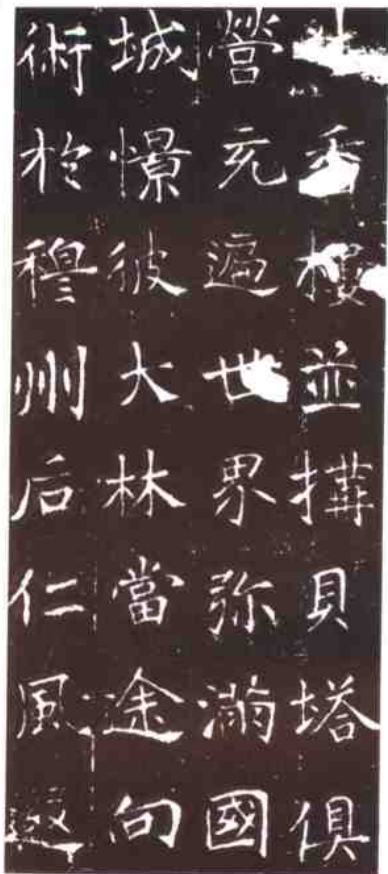 香樓並搆貝塔俱
營充遍世界弥滿國
城憬彼大林當途向
術於穆州后仁風遐